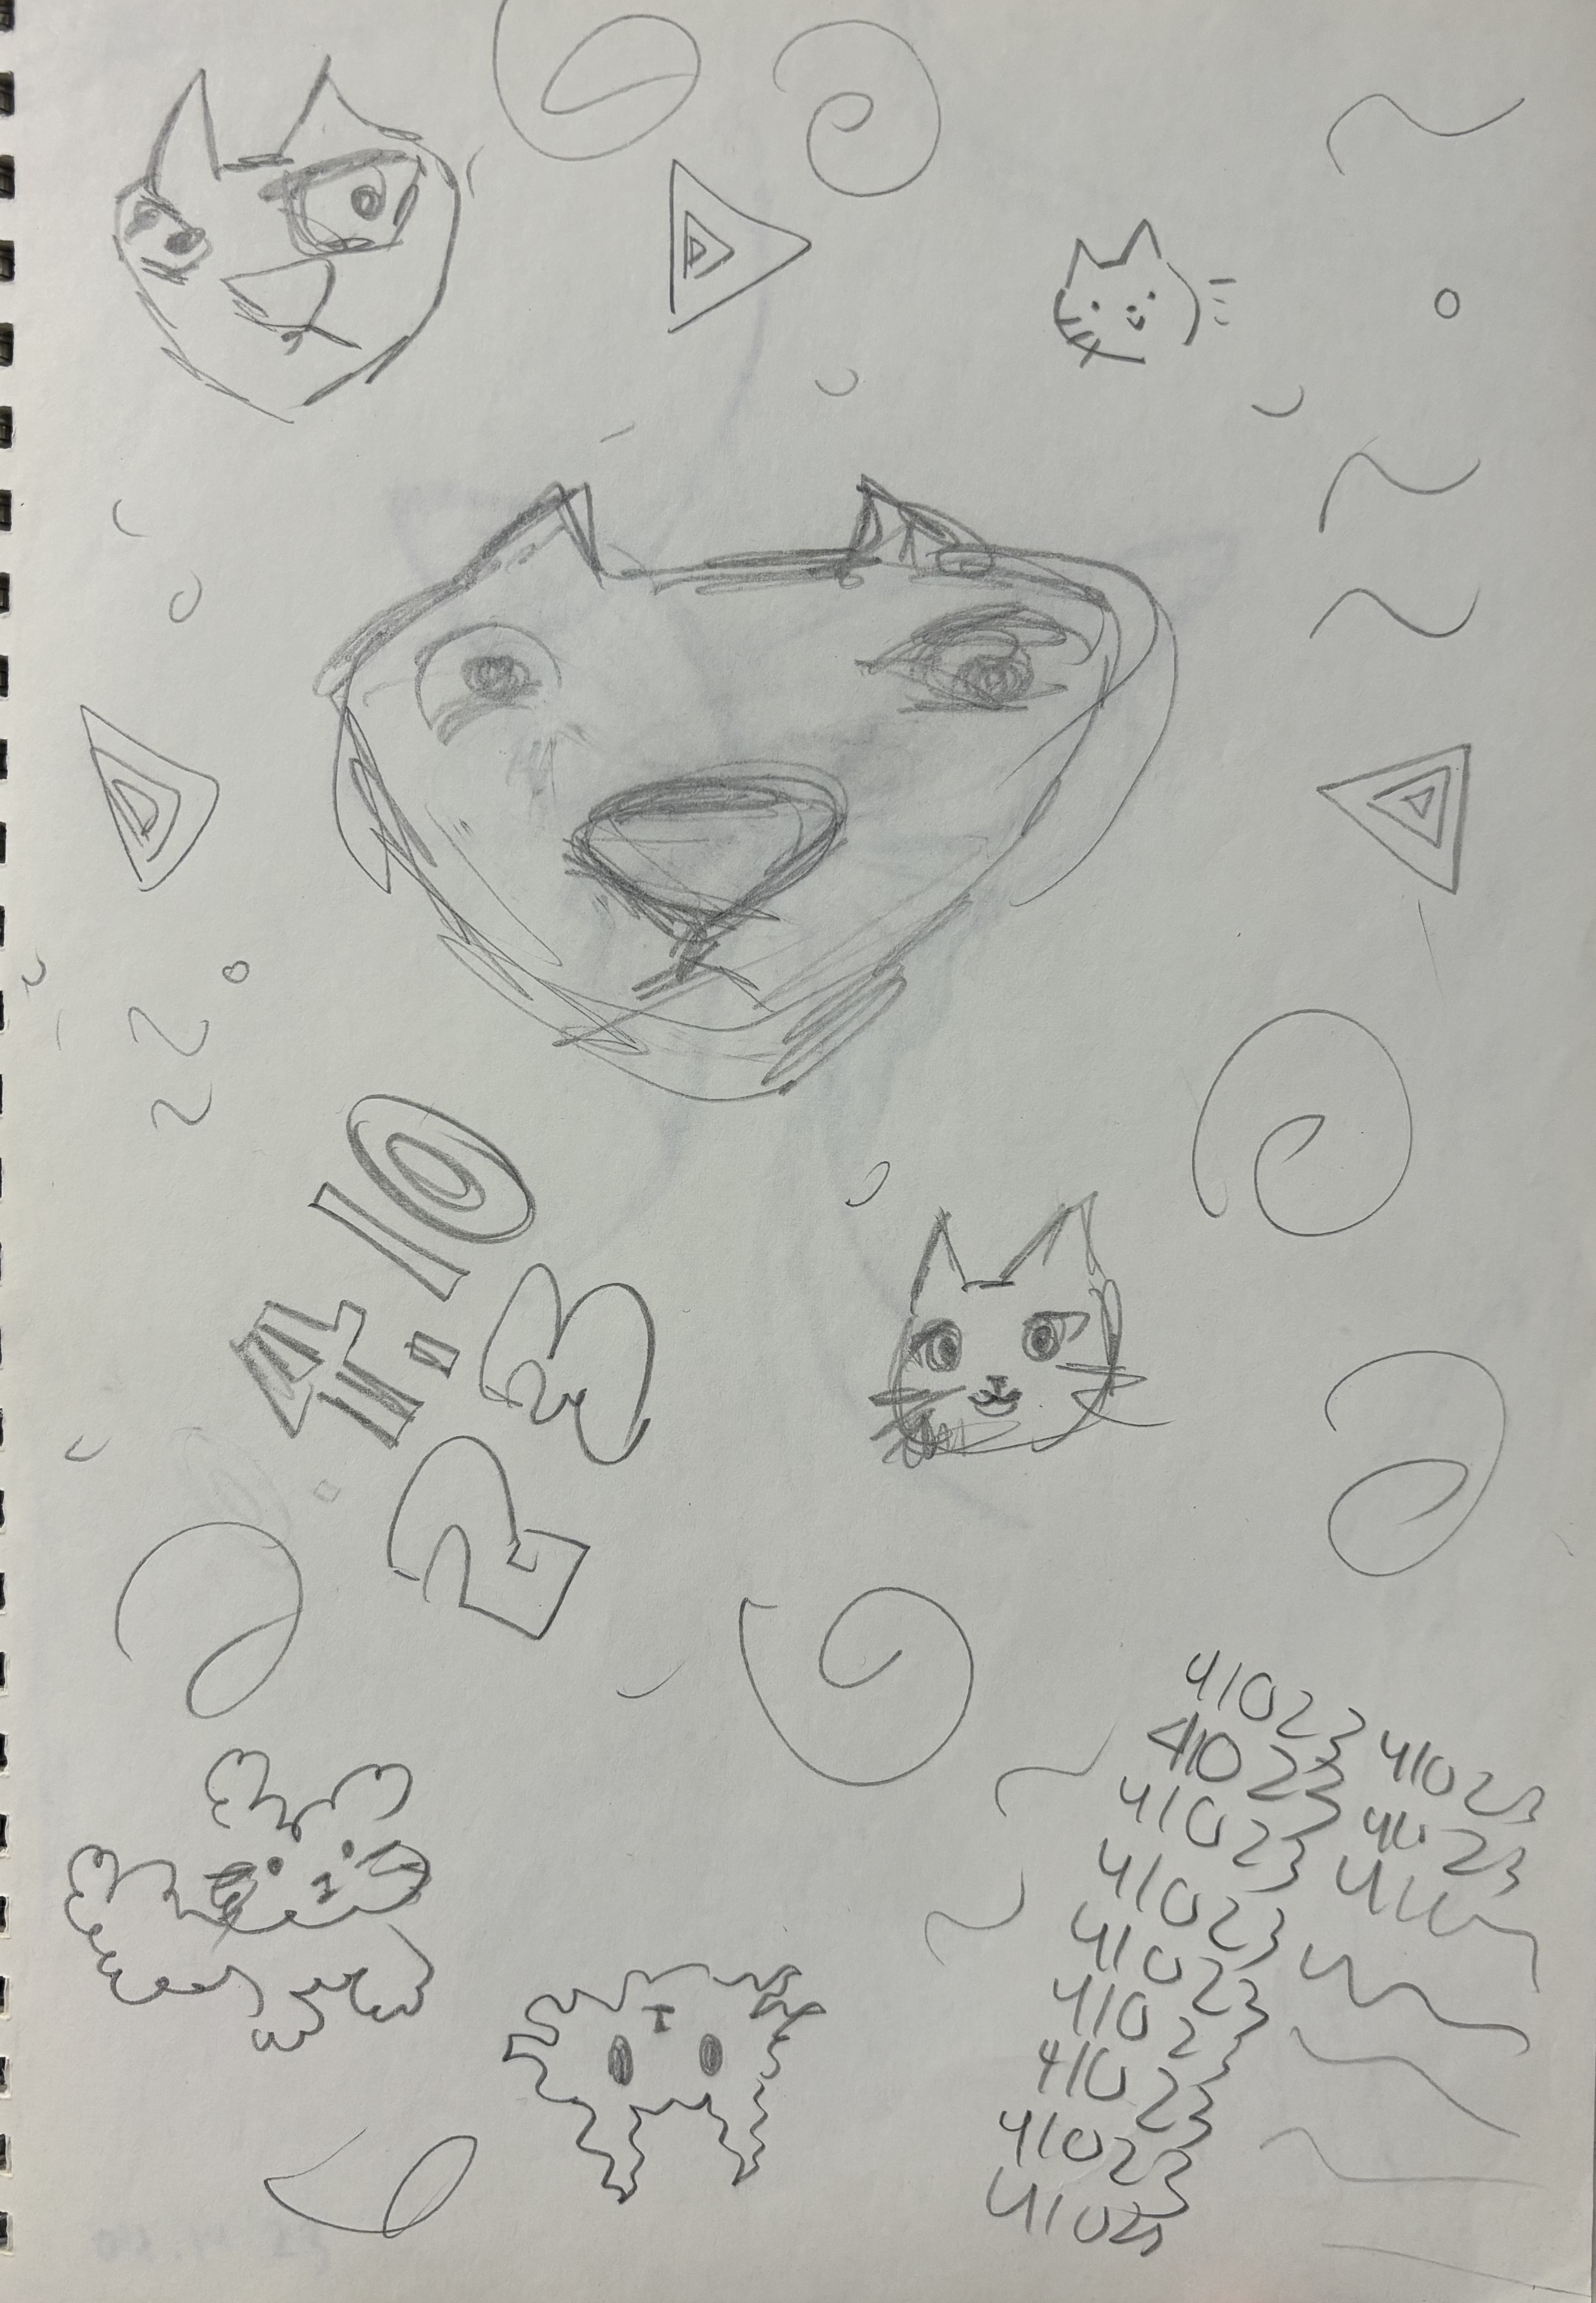 4.10
23
41023 41023
41023 41023
41023 410
41023
41023
41023
41023
41023
41023